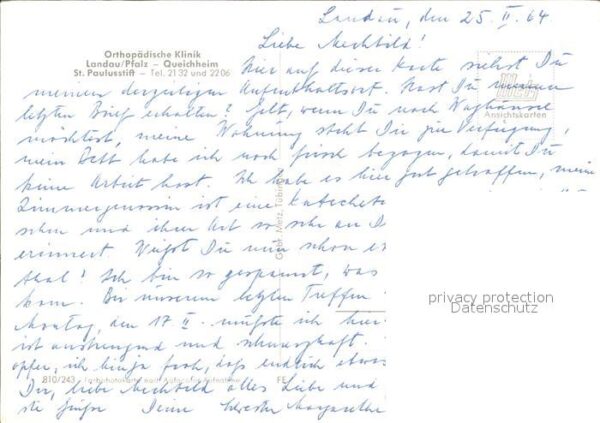 Landau, den 25. II. 64
Orthopädische Klinik
Landau/Pfalz – Queichheim
St. Paulusstift – Tel. 21 32 und 22 06
Liebe Mechtild!
Hier auf dieser Karte siehst Du
meinen derzeitigen Aufenthaltsort. Hast Du meinen
letzten Brief erhalten? Gelt, wenn Du nach Waghäusel
möchtest, meine Wohnung steht Dir zur Verfügung,
mein Bett habe ich noch frisch bezogen, damit Du
keine Arbeit hast. Ich habe es hier gut getroffen, meine
Zimmergenossin ist eine
und ihrer Art so sehr an
erinnert. Weißt Du nun schon
Ich bin so gespannt, was
kom. Bei unserem letzten Treffen
Montag, den 17. II. mußte ich hier
ist anstrengend und schmerzhaft.
opfer, ich bin ja froh, daß endlich etwas
Dir, liebe Mechtild alles Liebe und
Deine Margarethe
Ansichtskarten
Gebr. Metz, Tübingen
810/243
FE
privacy protection
Datenschutz